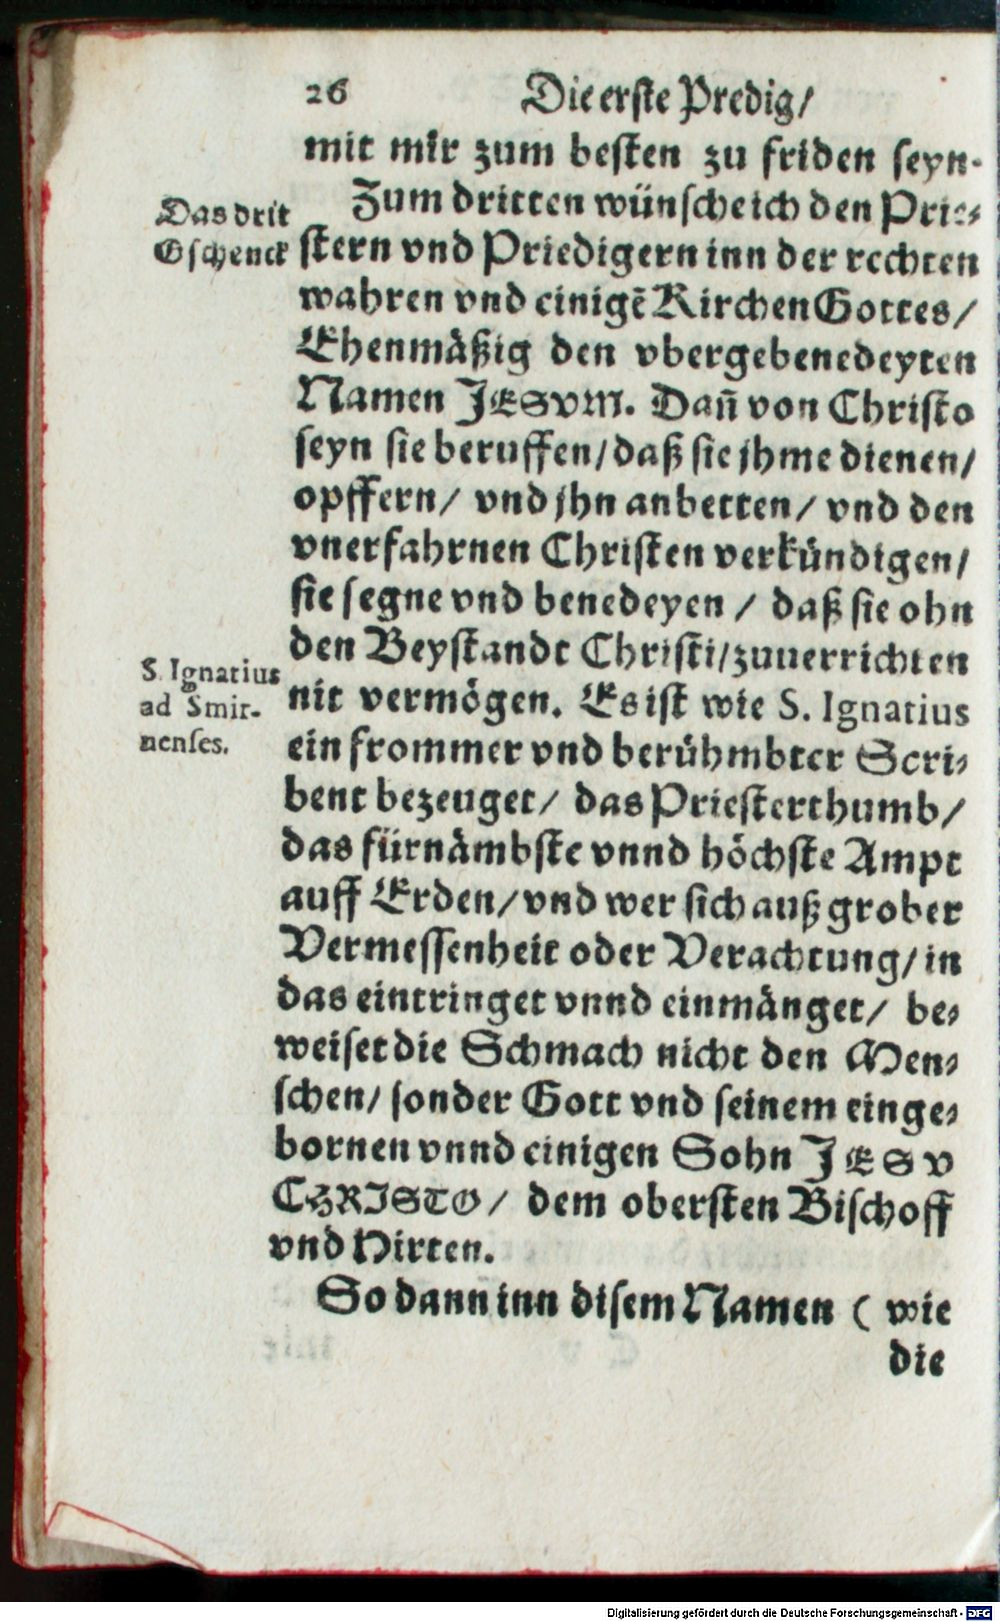 26 Die erste Predig/
mit mir zum besten zu friden seyn.
Das drit
Gschenck
Zum dritten wünsche ich den Prie⸗
stern vnd Priedigern inn der rechten
wahren vnd einigē Kirchen Gottes/
Ehenmäßig den vbergebenedeyten
Namen JESVM. Dañ von Christo
seyn sie beruffen/ daß sie jhme dienen/
opffern/ vnd jhn anbetten/ vnd den
vnerfahrnen Christen verkündigen/
sie segne vnd benedeyen / daß sie ohn
den Beystandt Christi/ zuuerrichten
S. Ignatius
ad Smir-
nenses.
nit vermögen. Es ist wie S. Ignatius
ein frommer vnd berühmbter Scri⸗
bent bezeuget/ das Priesterthumb/
das fürnämbste vnnd höchste Ampt
auff Erden/ vnd wer sich auß grober
Vermessenheit oder Verachtung/ in
das eintringet vnnd einmänget/ be⸗
weiset die Schmach nicht den Men⸗
schen/ sonder Gott vnd seinem einge⸗
bornen vnnd einigen Sohn JESV
CHRISTO/ dem obersten Bischoff
vnd Hirten.
So dann inn disem Namen ( wie
die
Digitalisierung gefördert durch die Deutsche Forschungsgemeinschaft - DFG